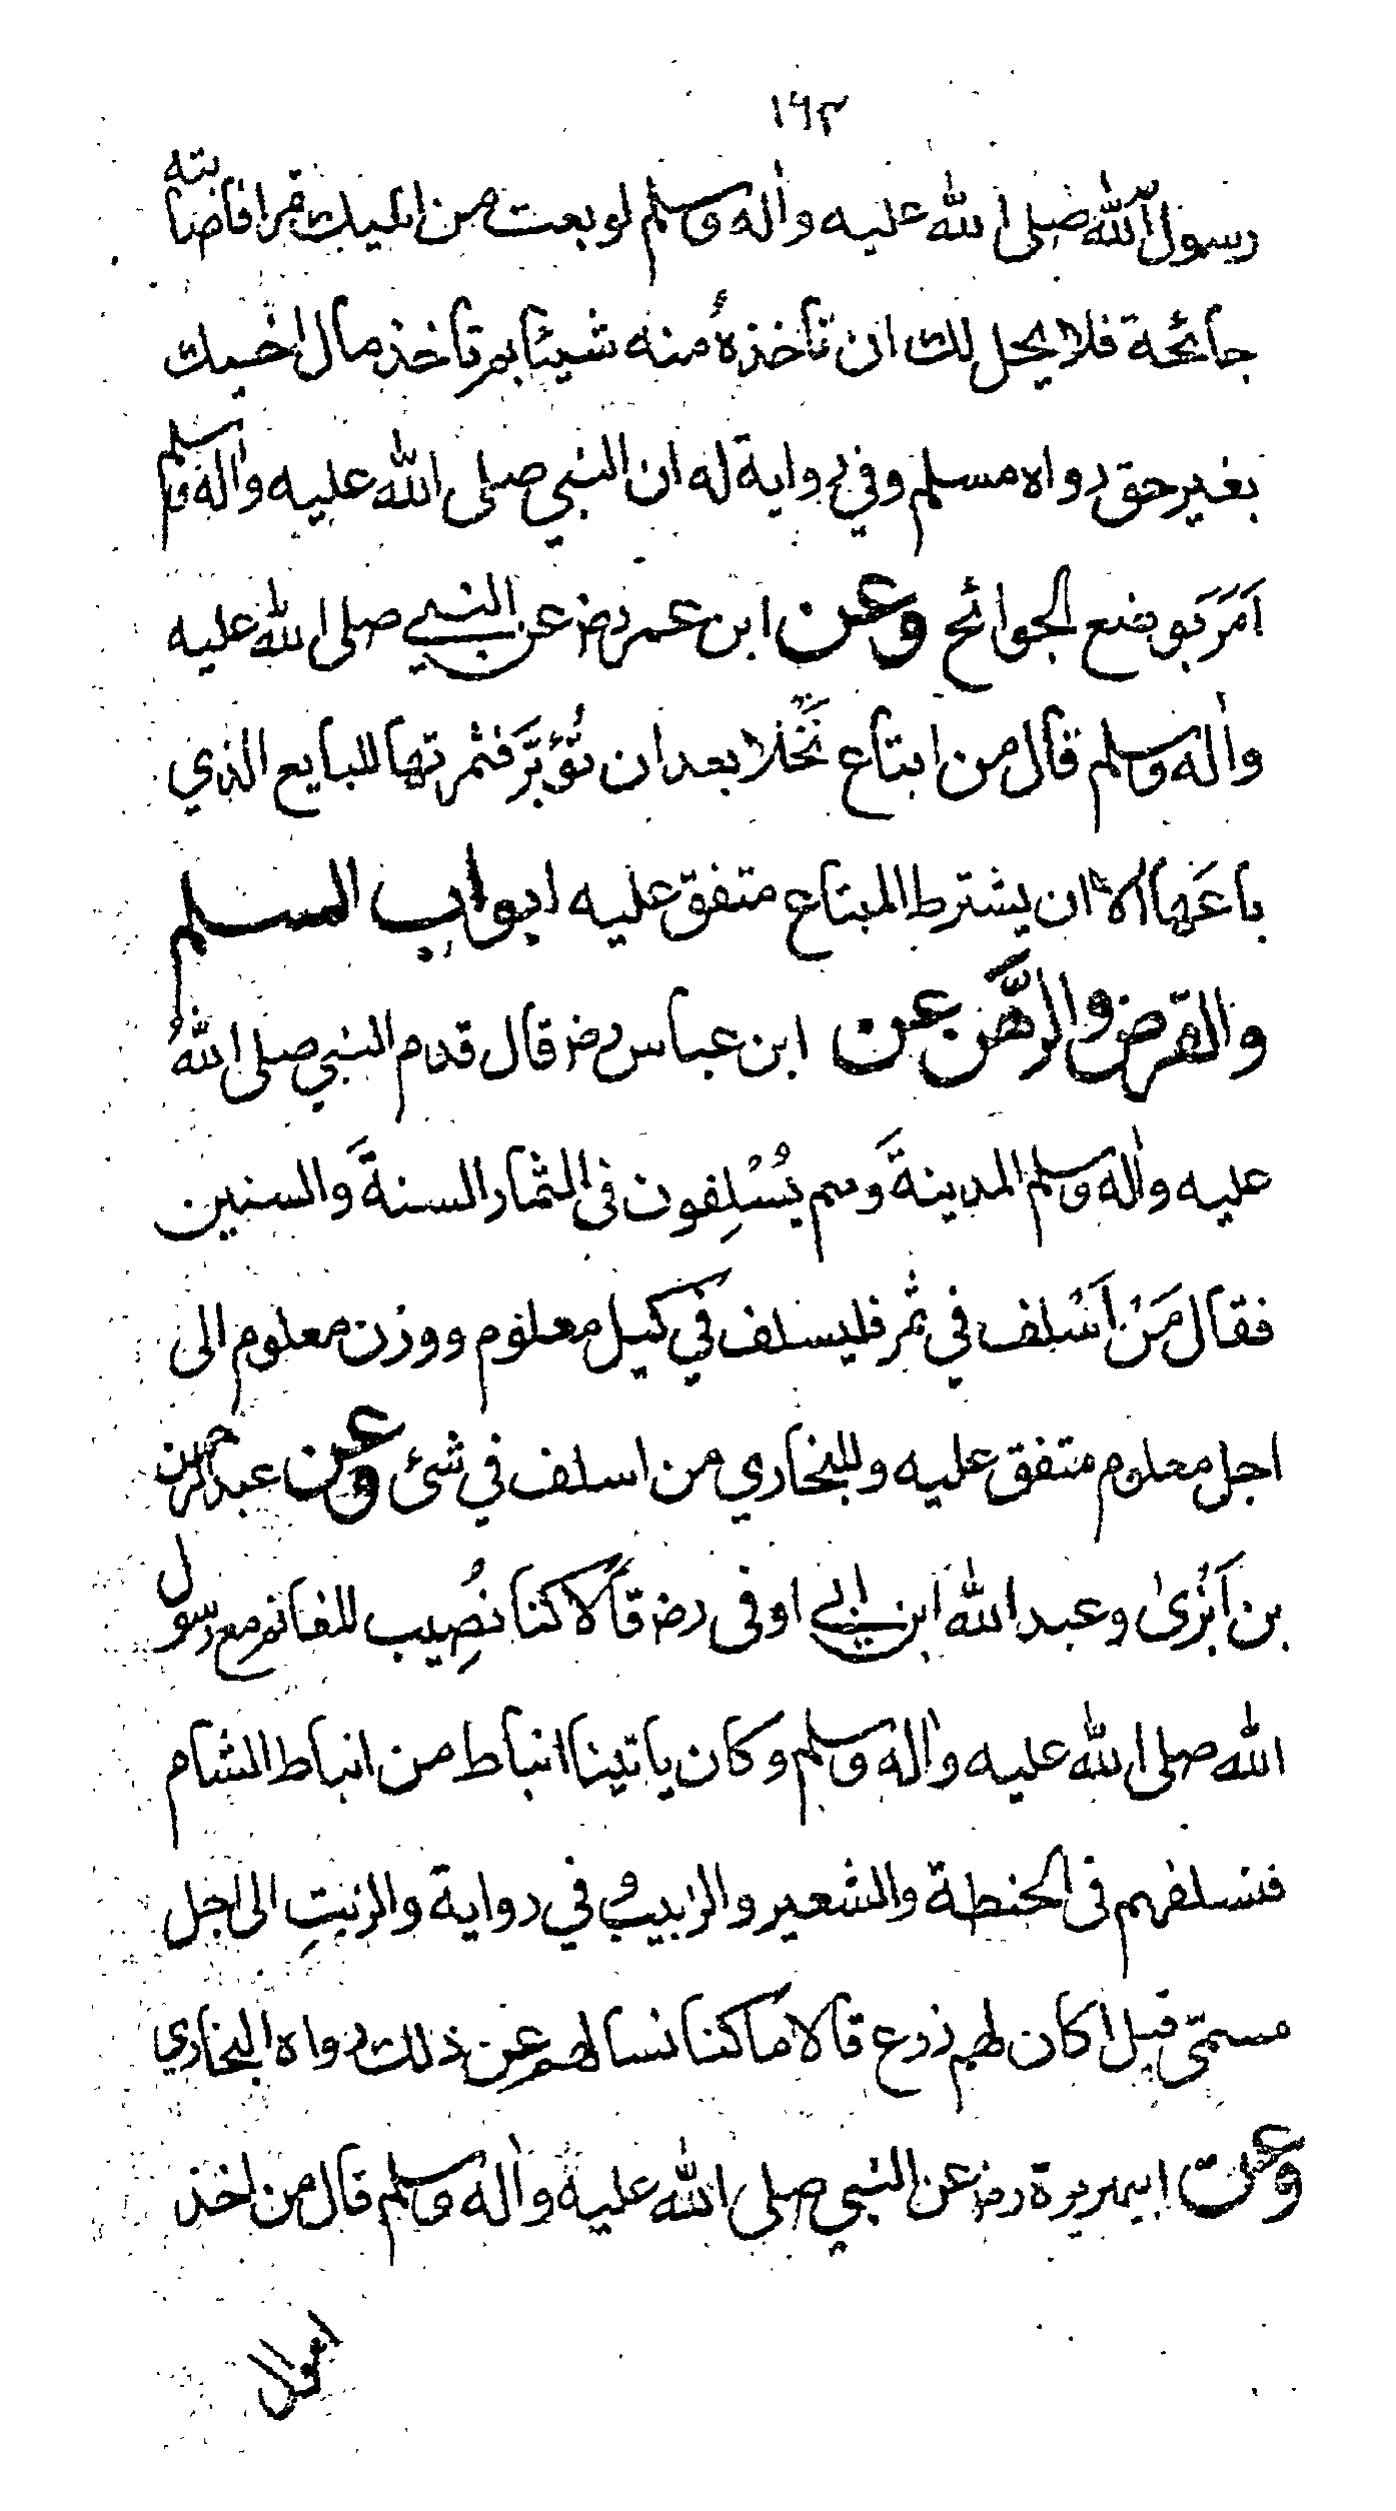 ١٦٢
رسول الله صلى الله عليه واٰله وسلم لو بعت من اخيك ثمرا فاصابته
جائحة فلا يحل لك ان تاخذهُ منه شيئا بم تاخذ مال اخيك
بغير حق رواه مسلم وفي رواية له ان النبي صلى الله عليه واٰله وسلم
اَمَرَ بَوضع الجوائح وعن ابن عمر رضـ عن النبي صلى الله عليه
واٰله وسلم قال من ابتاع نَخْلا بعد ان تُؤَبَّرَ فثمرتها للبايع الذي
باعَها الا ان يشترط المبتاع متفق عليه ابواب السلم
والقرض والرَّهن عن ابن عباس رضـ قال قدم النبي صلى اللهُ
عليه واٰله وسلم المدينةَ وهم يُسْلِفون فى الثمار السنةَ والسنين
فقال مَنْ اَسْلف في ثمر فليسلف في كيل معلوم ووزن معلوم الى
اجل معلوم متفق عليه وللبخاري من اسلف في شئ وعن عبد الرحمن
بن اَبْزىٰ وعبد الله ابن ابي اوفى رضـ قالا كنا نُصِيب المغانم مع رسول
الله صلى الله عليه واٰله وسلم وكان ياتينا انباط من انباط الشام
فنسلفهم فى الحنطة والشعير والزبيب وفي رواية والزيتِ الى اجل
مسمّى قيل اكان لهم زرع قالا ما كنا نسالهم عن ذلك رواه البخاري
وعن ابيهريرة رضـ عن النبي صلى الله عليه واٰله وسلم قال من اخذ
اموال